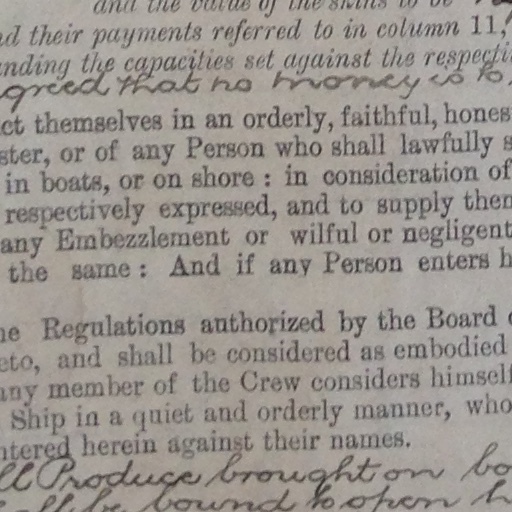 and the value of the skins to be
nd their payments referred to in column 11,
nding the capacities set against the respecti
greed that no money is to
ct themselves in an orderly, faithful, hones
ster, or of any Person who shall lawfully s
in boats, or on shore : in consideration of
respectively expressed, and to supply them
any Embezzlement or wilful or negligent
the same : And if any Person enters h
he Regulations authorized by the Board o
eto, and shall be considered as embodied
any member of the Crew considers himself
Ship in a quiet and orderly manner, who
ntered herein against their names.
ll Produce brought on bo
be bound to open h